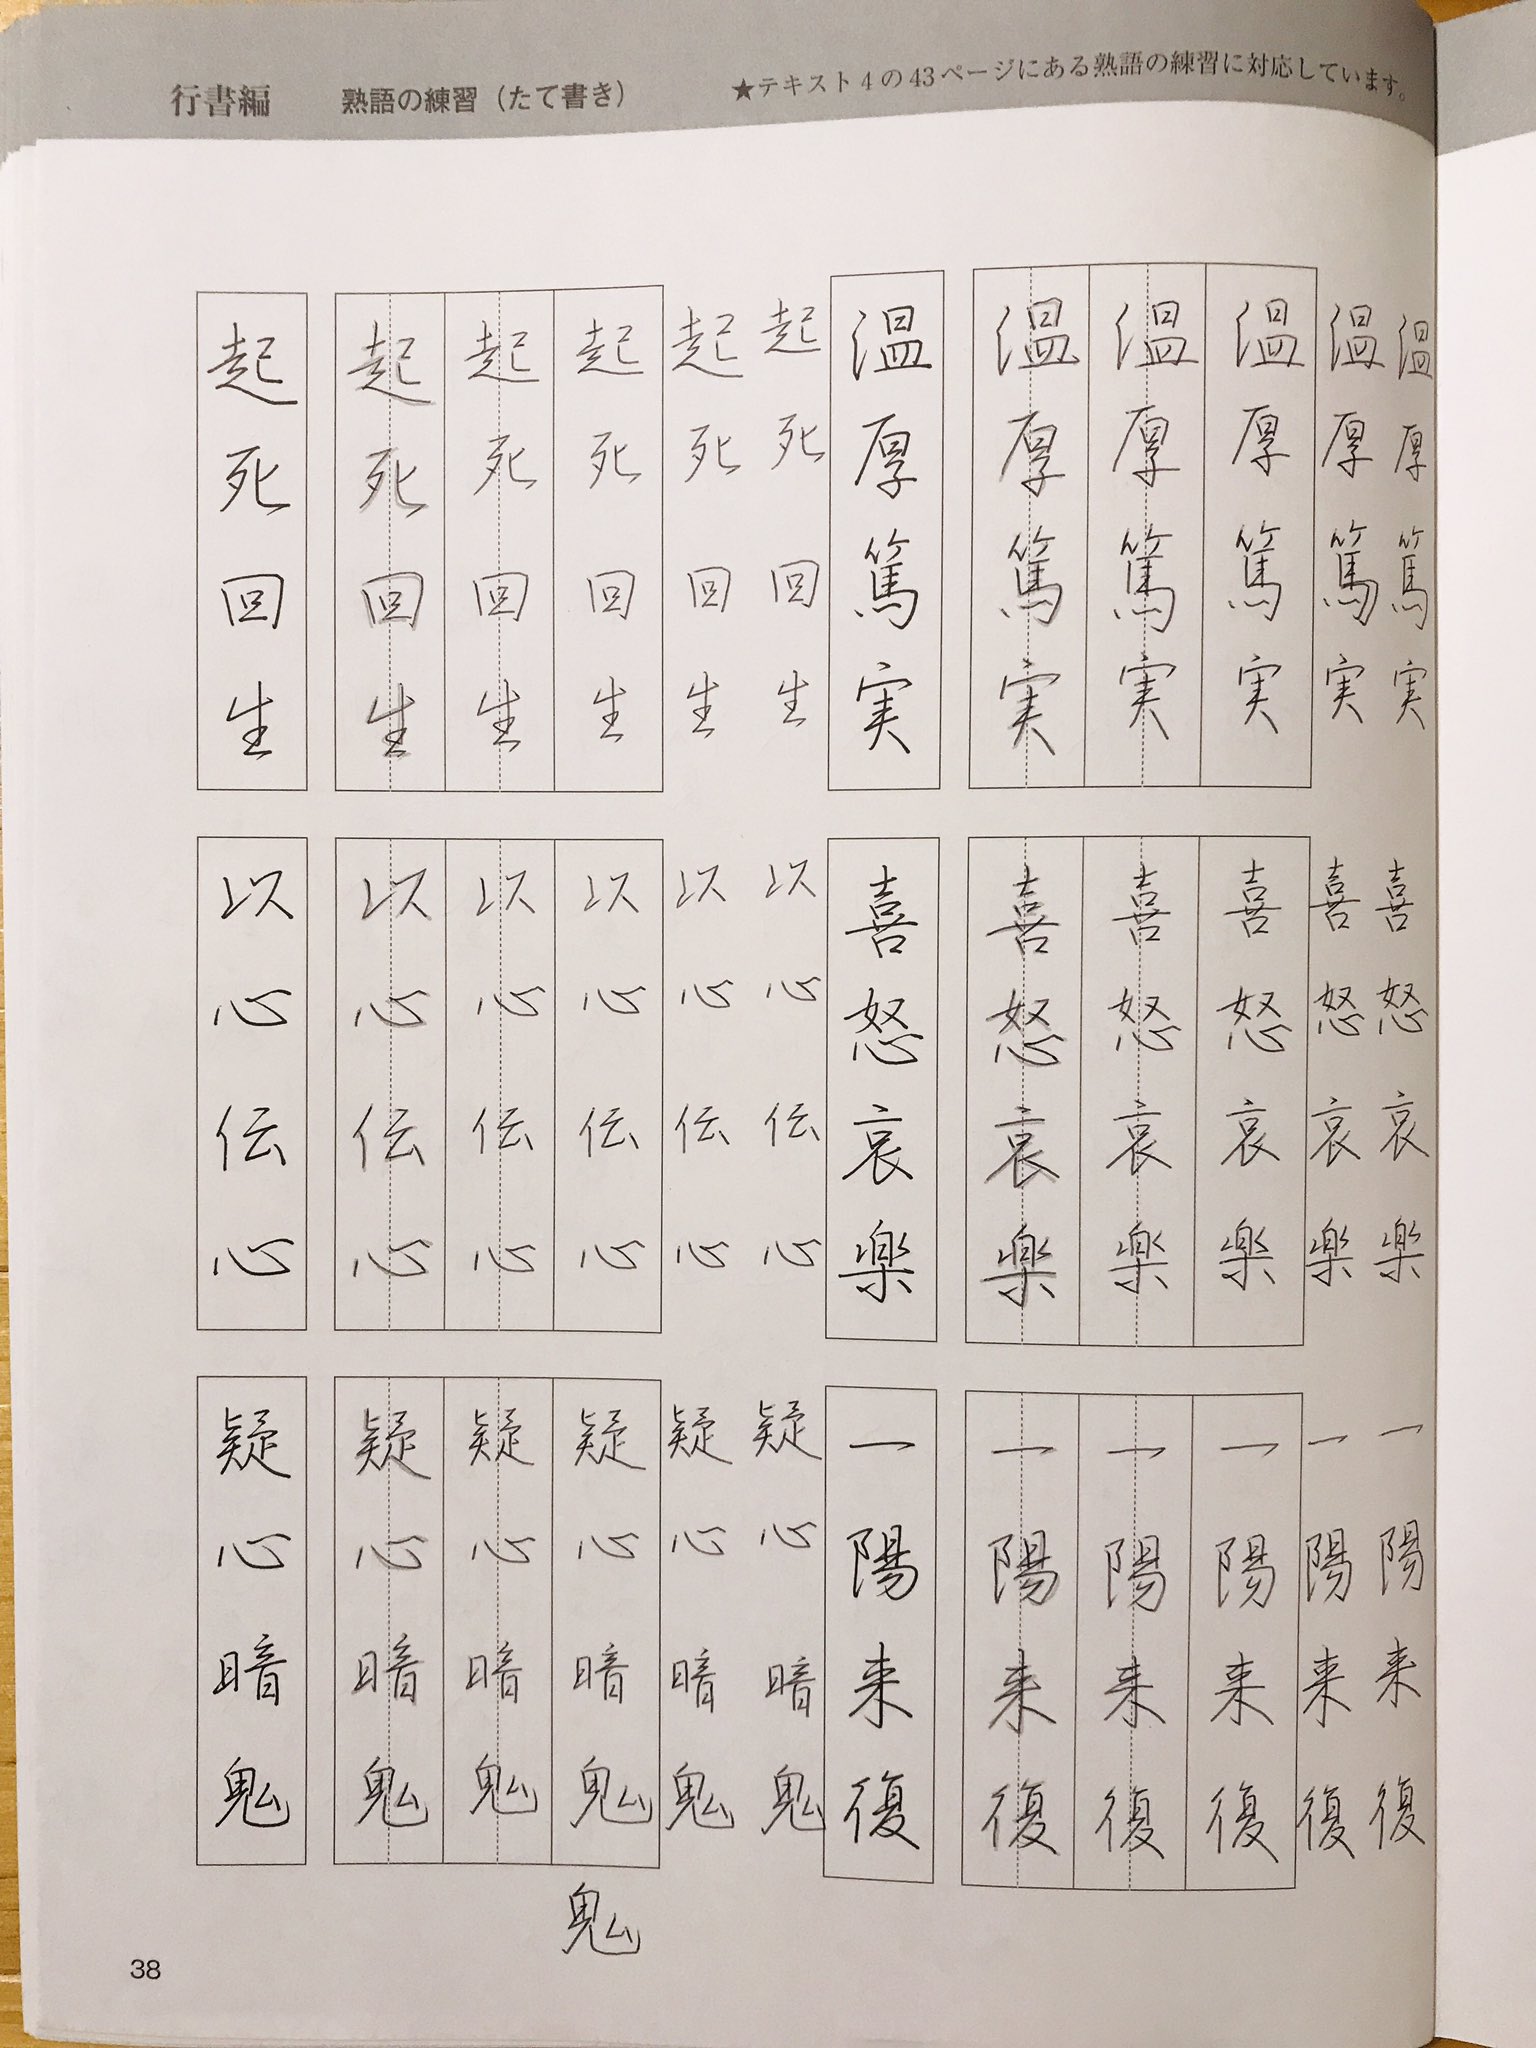 行書編 熟語の練習（たて書き） ★テキスト4の43ページにある熟語の練習に対応しています。
温厚篤実
温厚篤実
温厚篤実
温厚篤実
温厚篤実
温厚篤実
起死回生
起死回生
起死回生
起死回生
起死回生
起死回生
喜怒哀楽
喜怒哀楽
喜怒哀楽
喜怒哀楽
喜怒哀楽
喜怒哀楽
以心伝心
以心伝心
以心伝心
以心伝心
以心伝心
以心伝心
一陽来復
一陽来復
一陽来復
一陽来復
一陽来復
一陽来復
疑心暗鬼
疑心暗鬼
疑心暗鬼
疑心暗鬼
疑心暗鬼
疑心暗鬼
鬼
38